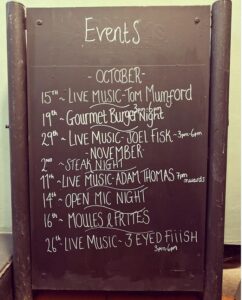 Events
- OCTOBER -
15TH ~ LIVE MUSIC - TOM Mumford
3pm-6pm
19TH ~ Gourmet Burger Night
29TH ~ LIVE MUSIC - JOEL FISK ~ 3pm-6pm
- NOVEMBER -
2ND ~ STEAK NIGHT
11TH ~ LIVE MUSIC - ADAM THOMAS 7pm onwards
14TH ~ OPEN MIC NIGHT
16TH ~ MOULES & FRITES
26TH ~ LIVE MUSIC ~ 3 EYED FiiiSH
3pm-6pm